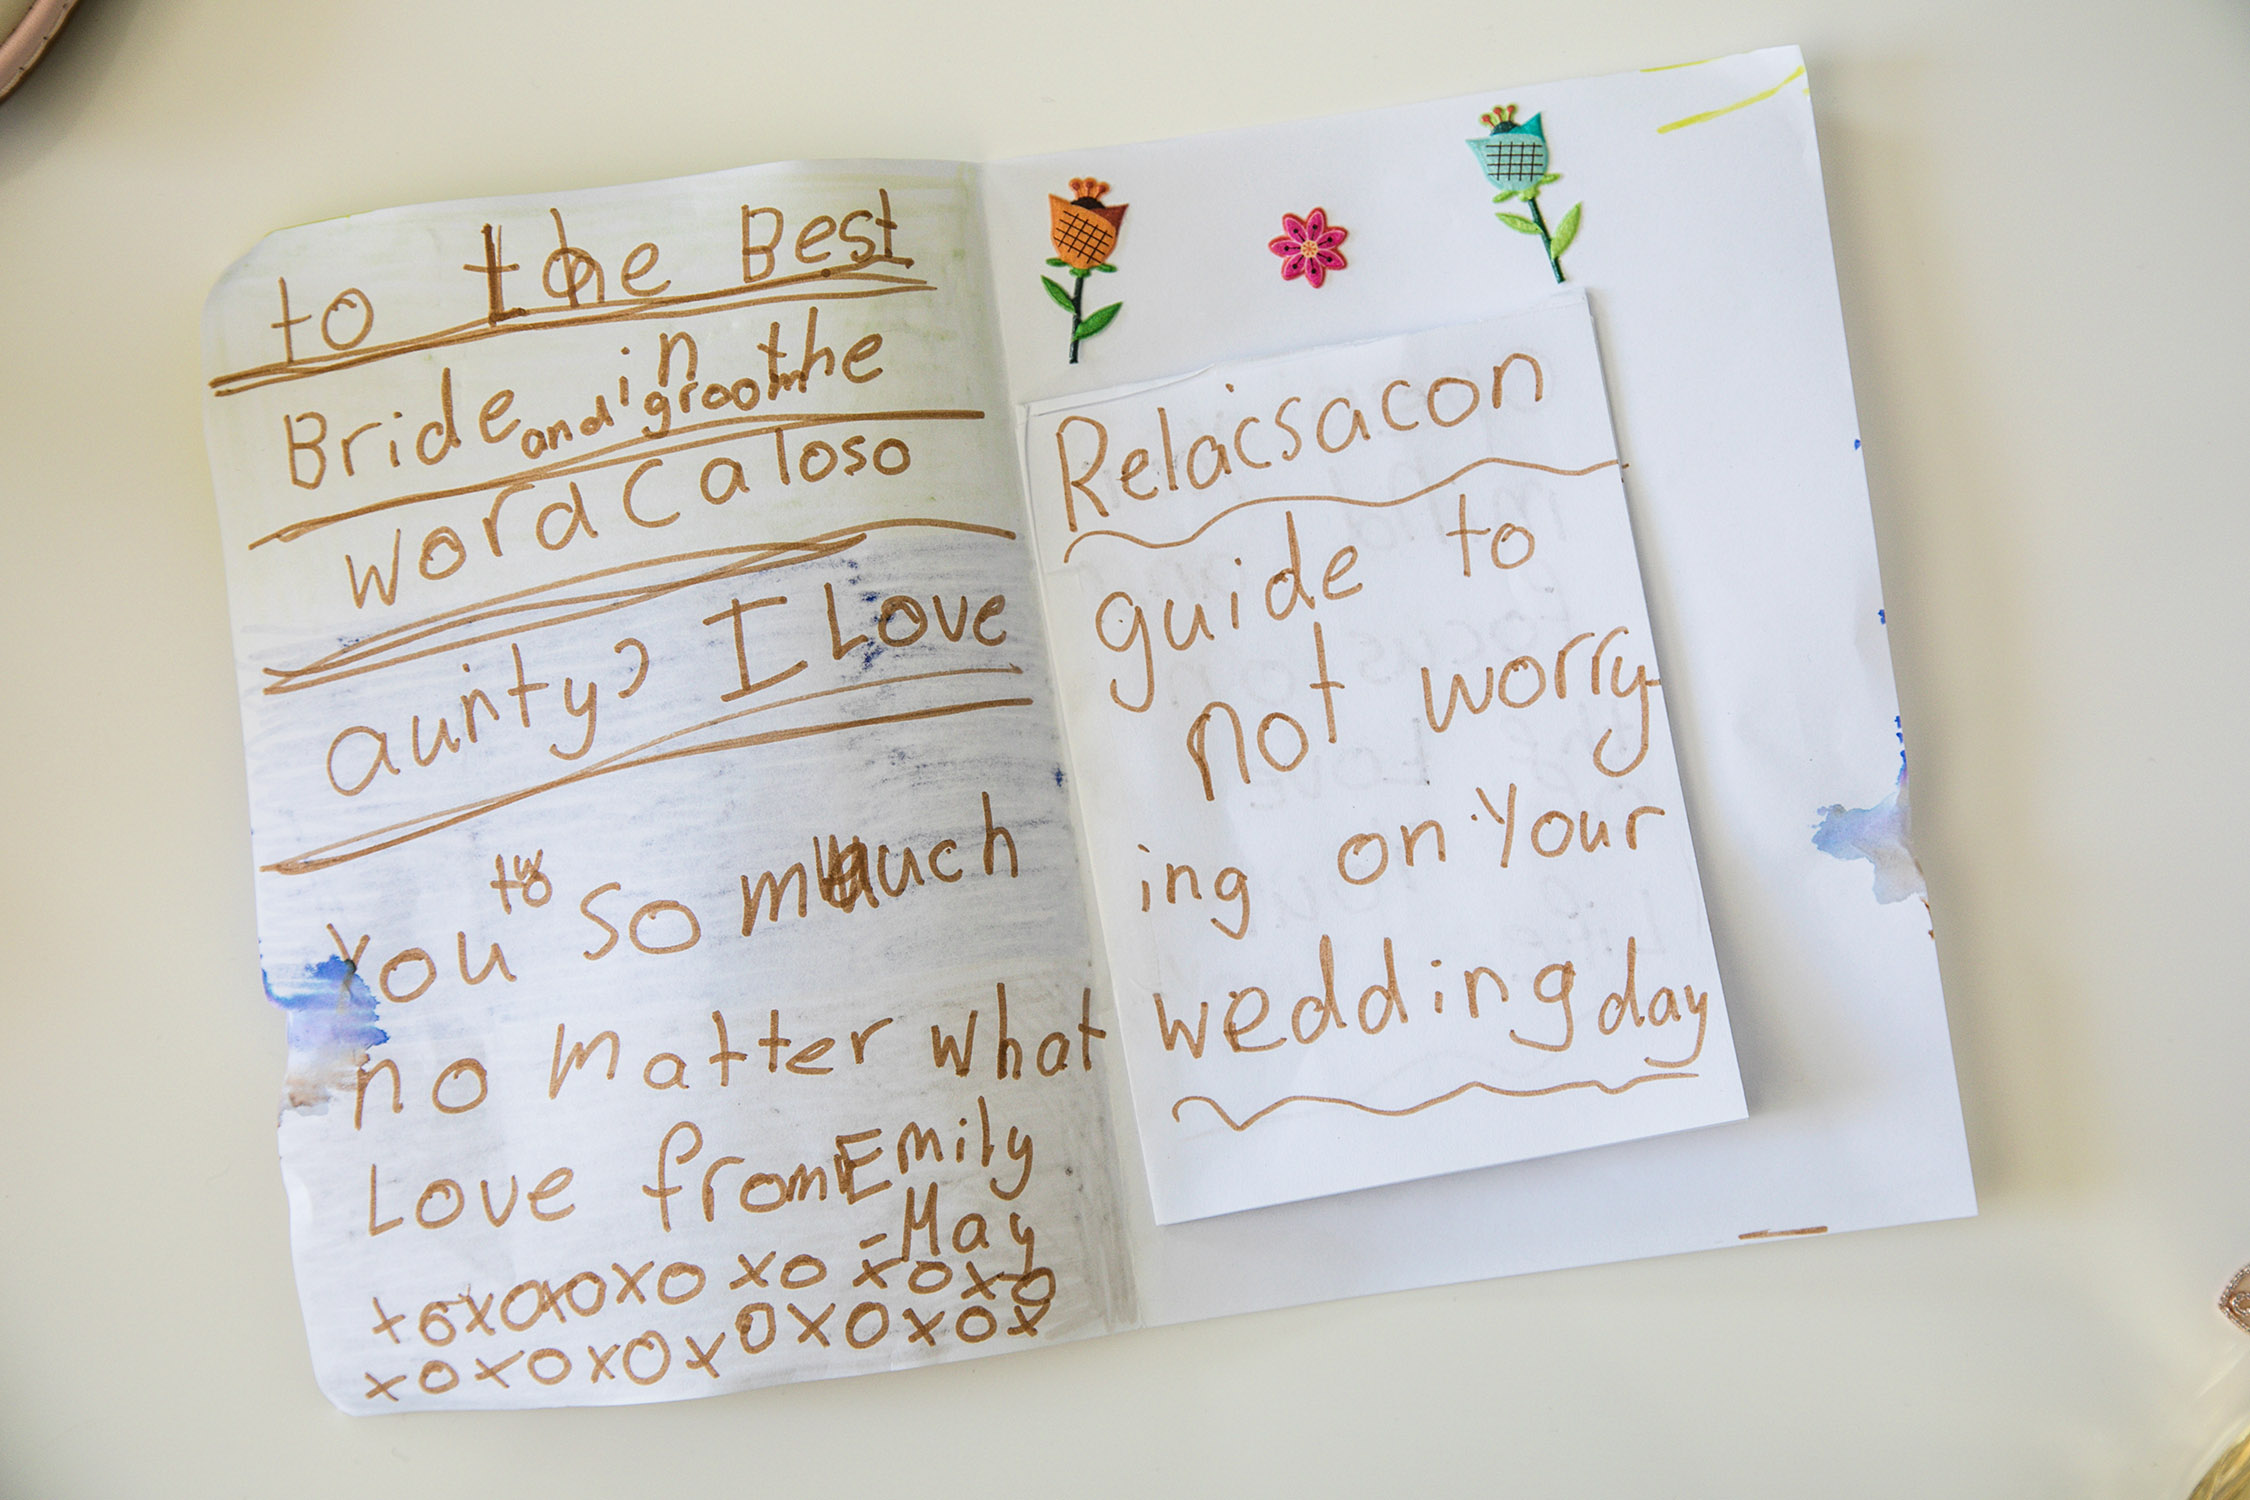 to the Best
Bride and groom in the
word caloso
aunty, I Love
You two so much
no matter what
Love from Emily
-May
xoxoxoxo xo xoxo
xoxoxoxoxoxox
Relacsacon
guide to
not worry
ing on your
wedding day